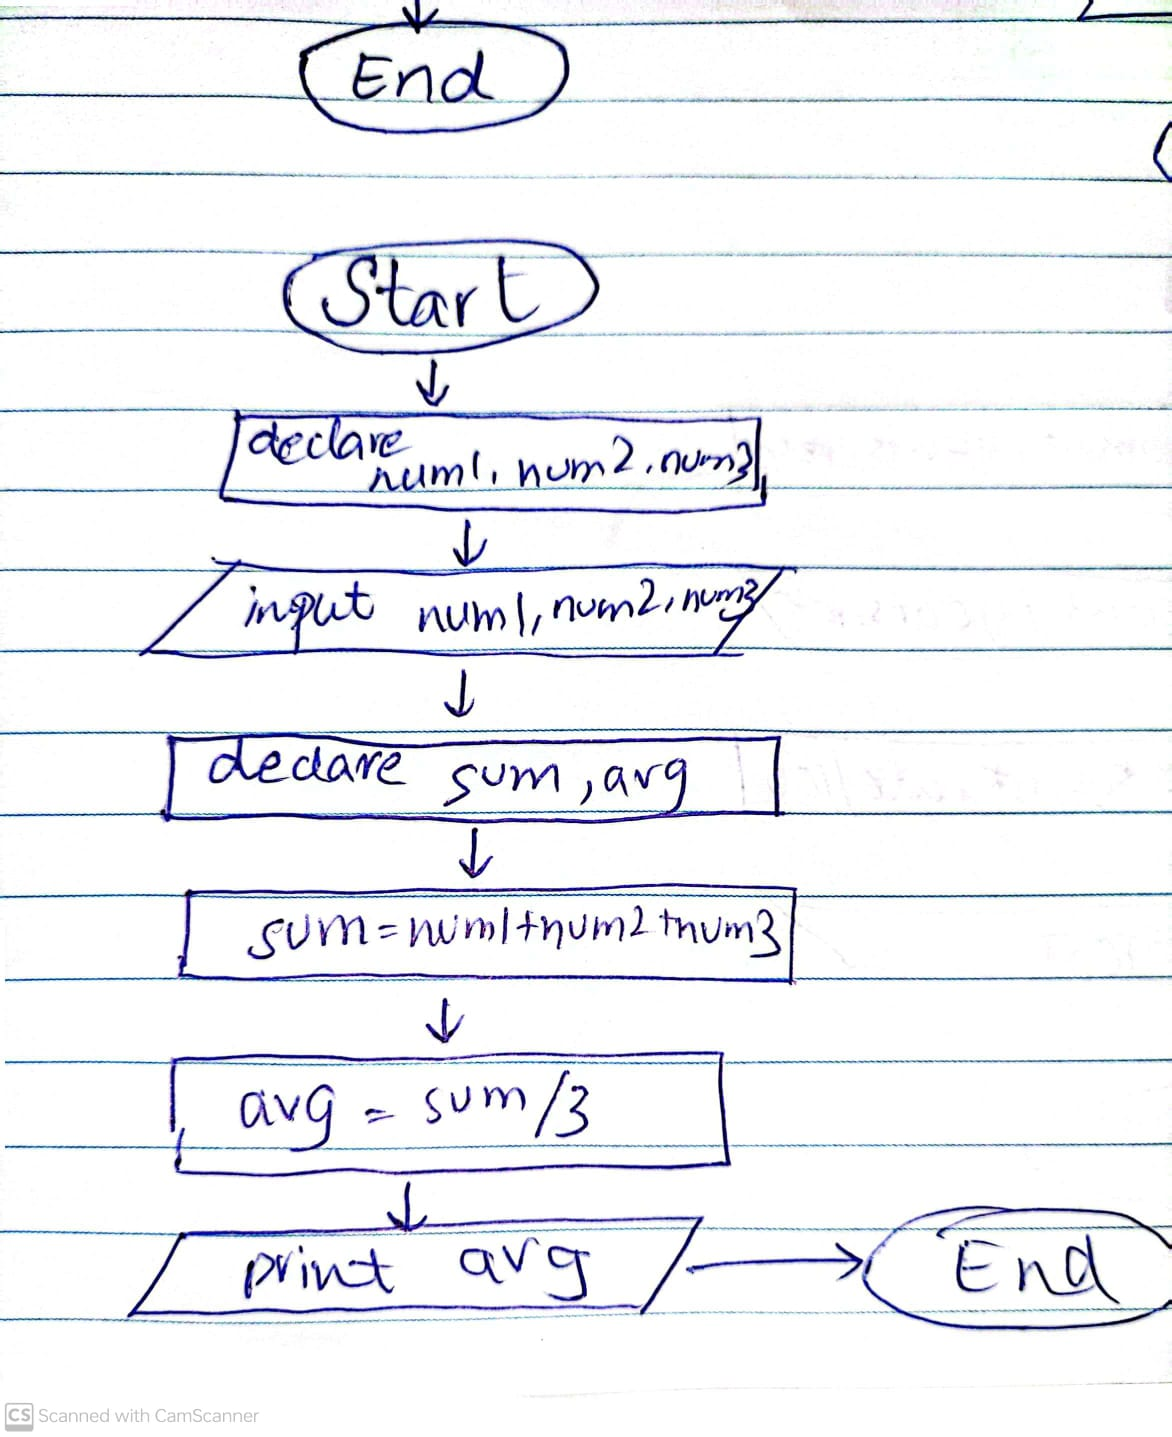 End
Start
declare
num1, num2, num3
input num1, num2, num3
declare sum, avg
sum=num1+num2+num3
avg = sum/3
print avg
End
CS Scanned with CamScanner